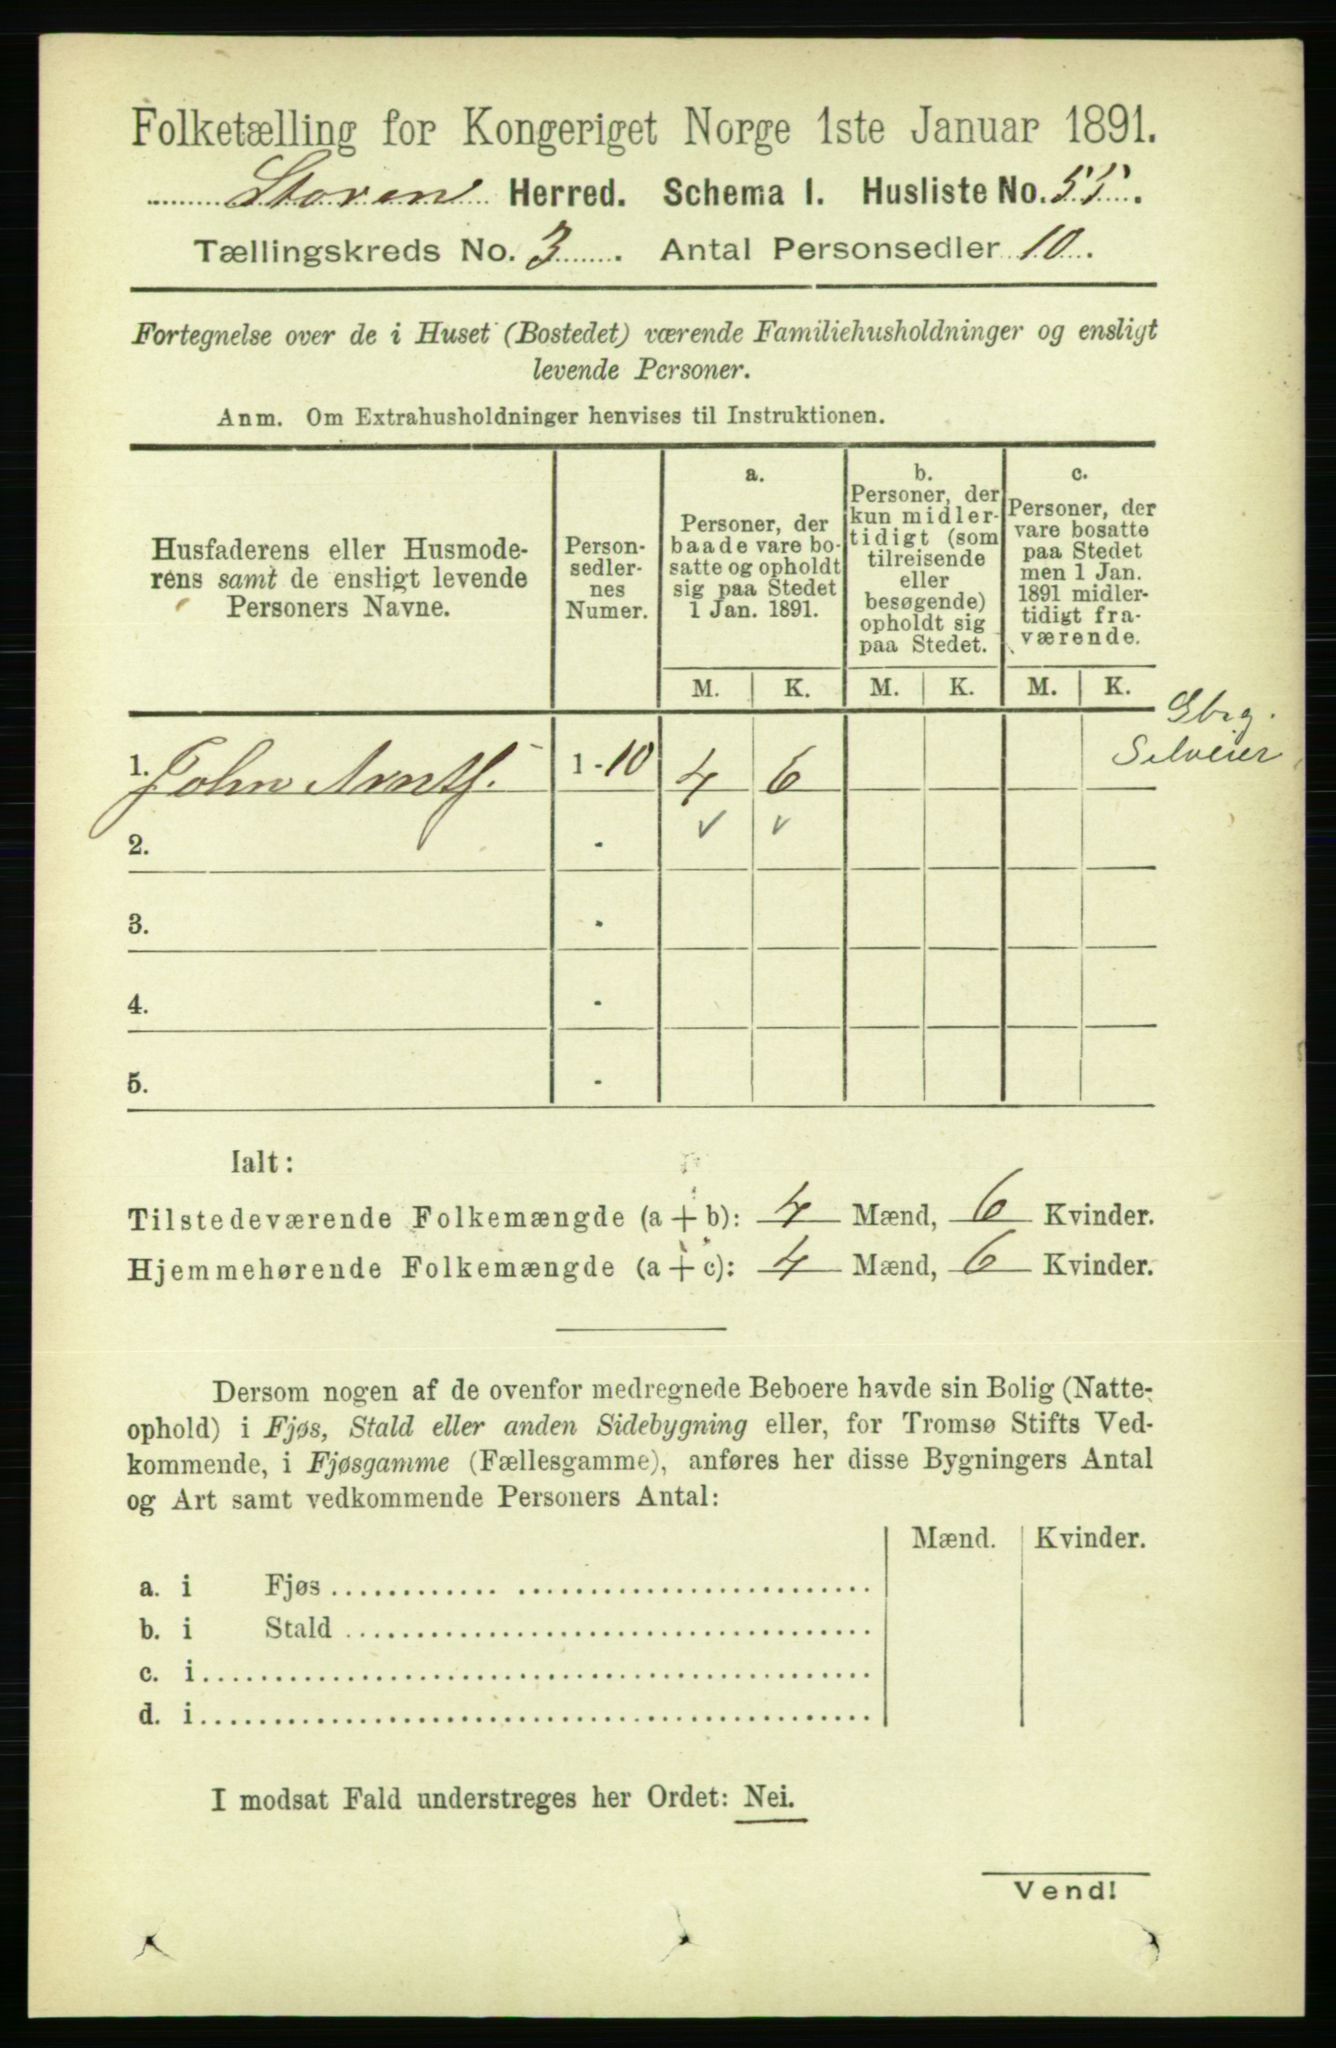 Folketælling for Kongeriget Norge 1ste Januar 1891.
Støren Herred. Schema I. Husliste No. 55.
Tællingskreds No. 3. Antal Personsedler 10.
Fortegnelse over de i Huset (Bostedet) værende Familiehusholdninger og ensligt
levende Personer.
Anm. Om Extrahusholdninger henvises til Instruktionen.
Husfaderens eller Husmode-
rens samt de ensligt levende
Personers Navne.
Person-
sedler-
nes
Numer.
a.
Personer, der
baade vare bo-
satte og opholdt
sig paa Stedet
1 Jan. 1891.
b.
Personer, der
kun midler-
tidigt (som
tilreisende
eller
besøgende)
opholdt sig
paa Stedet.
c.
Personer, der
vare bosatte
paa Stedet
men 1 Jan.
1891 midler-
tidigt fra-
værende.
M. K. M. K. M. K.
Gbrg.
Selveier
1. John Arnts. 1 - 10 4 6
2. - ✓ ✓
3. -
4. -
5. -
Ialt:
Tilstedeværende Folkemængde (a + b): 4 Mænd, 6 Kvinder.
Hjemmehørende Folkemængde (a + c): 4 Mænd, 6 Kvinder.
Dersom nogen af de ovenfor medregnede Beboere havde sin Bolig (Natte-
ophold) i Fjøs, Stald eller anden Sidebygning eller, for Tromsø Stifts Ved-
kommende, i Fjøsgamme (Fællesgamme), anføres her disse Bygningers Antal
og Art samt vedkommende Personers Antal:
Mænd. Kvinder.
a. i Fjøs
b. i Stald
c. i
d. i
I modsat Fald understreges her Ordet: Nei.
Vend!